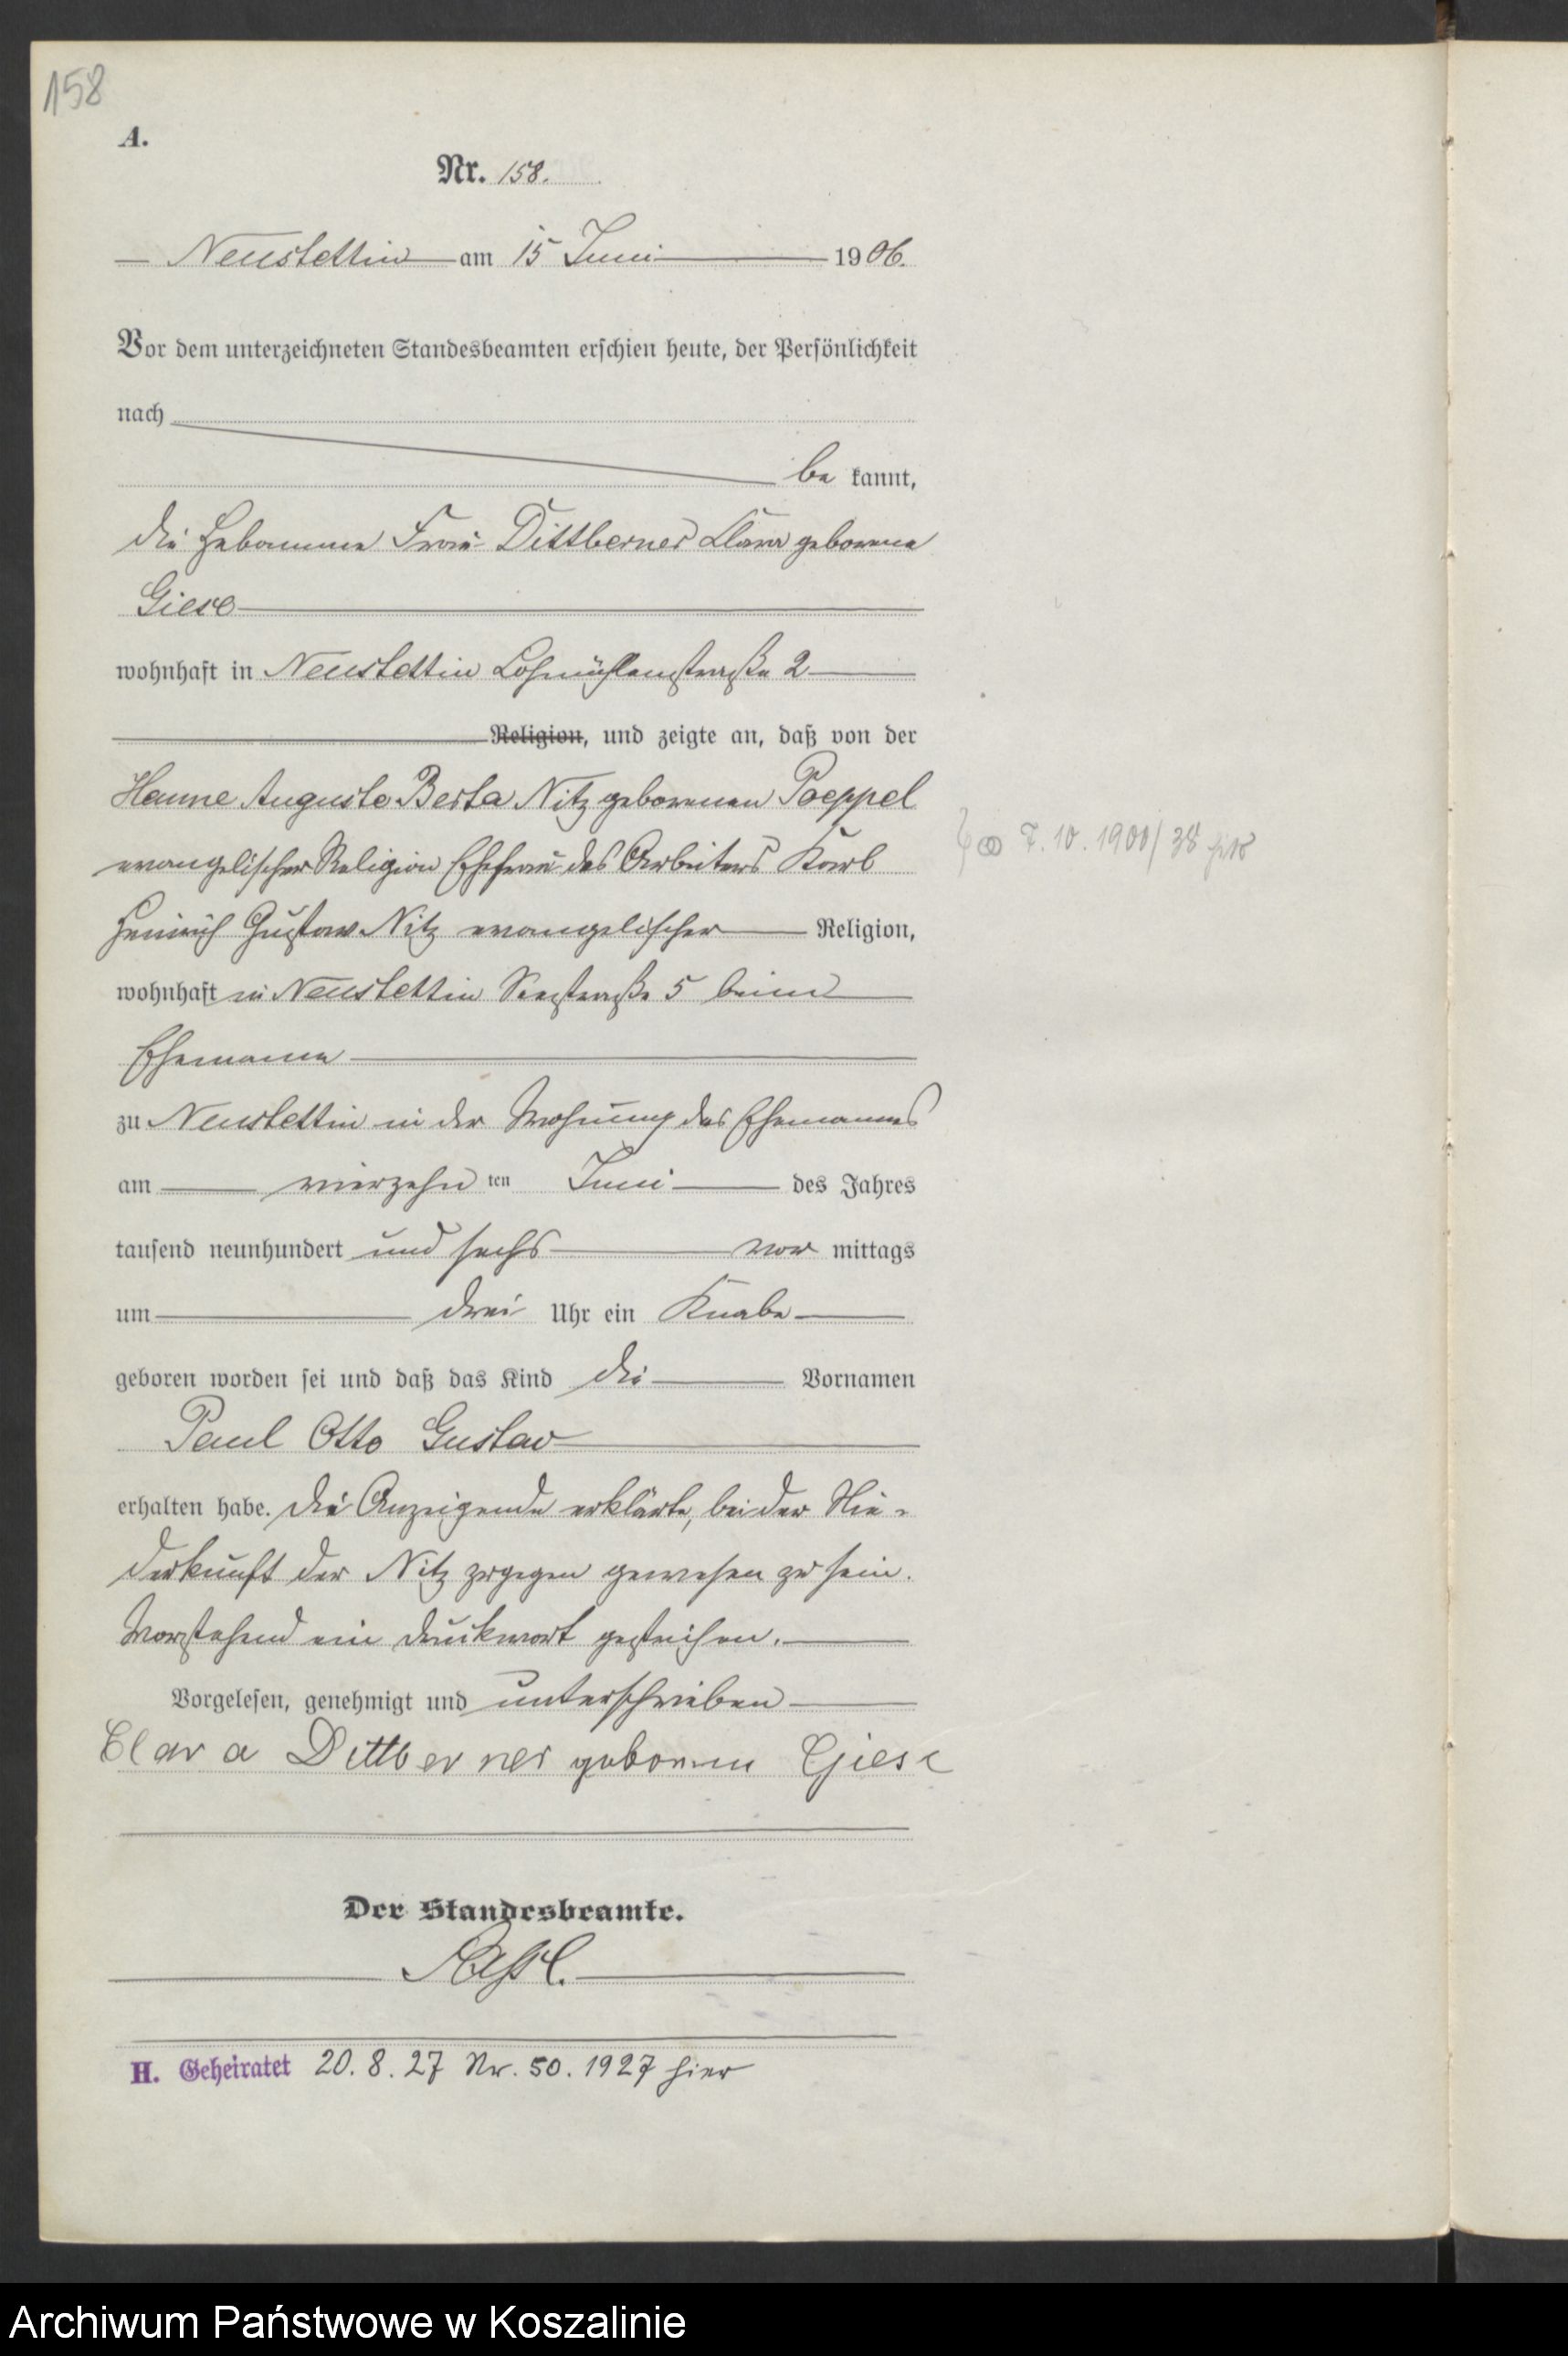 158
A.
Nr. 158.
Neustettin am 15 Juni 1906.
Vor dem unterzeichneten Standesbeamten erschien heute, der Persönlichkeit
nach
be kannt,
die Hebamme Frau Dittberner Klara geborene
Giese
wohnhaft in Neustettin Lohmühlenstraße 2
Religion, und zeigte an, daß von der
Hanne Auguste Berta Nitz geborenen Poeppel
evangelischer Religion Ehefrau des Arbeiters Karl
Heinrich Gustav Nitz evangelischer Religion,
wohnhaft in Neustettin Seestraße 5 beim
Ehemanne
zu Neustettin in der Wohnung des Ehemannes
am vierzehn ten Juni des Jahres
tausend neunhundert und sechs vor mittags
um drei Uhr ein Knabe
geboren worden sei und daß das Kind die Vornamen
Paul Otto Gustav
erhalten habe. Die Anzeigende erklärte, bei der Nie-
derkunft der Nitz zugegen gewesen zu sein.
Vorstehend ein Druckwort gestrichen.
Vorgelesen, genehmigt und unterschrieben
Clara Dittberner geborene Giese
Der Standesbeamte.
H. Geheiratet 20. 8. 27 Nr. 50. 1927 hier
⚭ 7. 10. 1900/38 hier
Archiwum Państwowe w Koszalinie